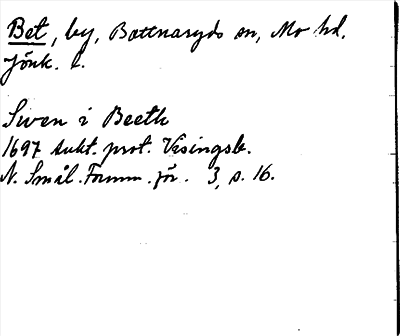 Bet, by, Bottnaryds sn, Mo hd.
Jönk. l.
Swen i Beeth
1697 aukt. prot. Visingsb.
N. Smål. Fornm. för. 3, s. 16.